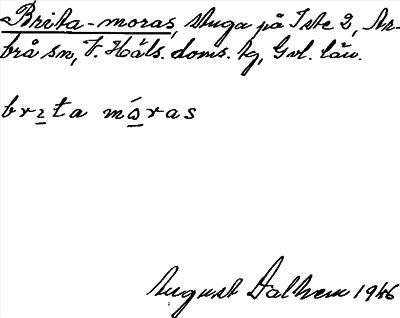 Brita-moras, stuga på Iste 2, Ar-
brå sn, V. Häls. doms. bg, Gvl. län.
brıta móras
August Dalhem 1946